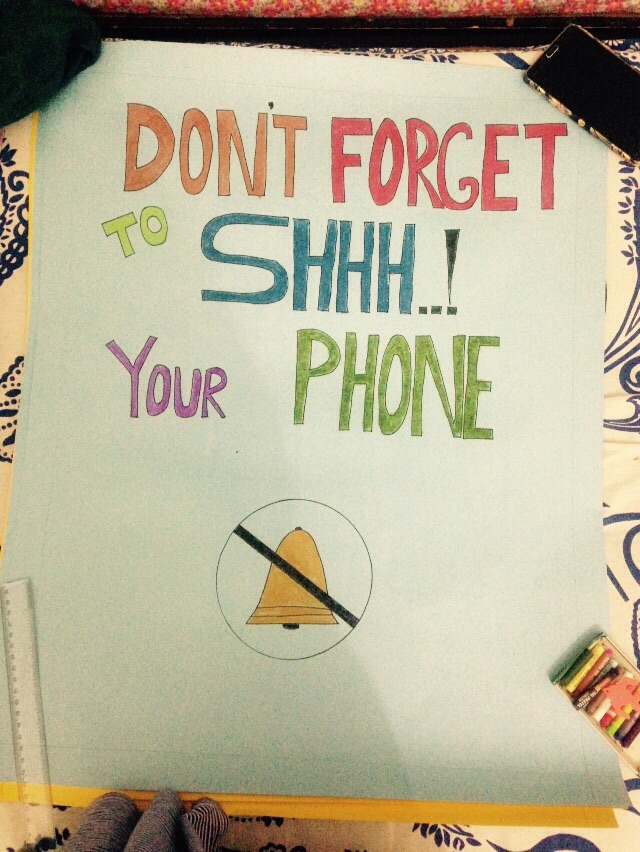 DON'T FORGET
TO SHHH...!
YOUR PHONE